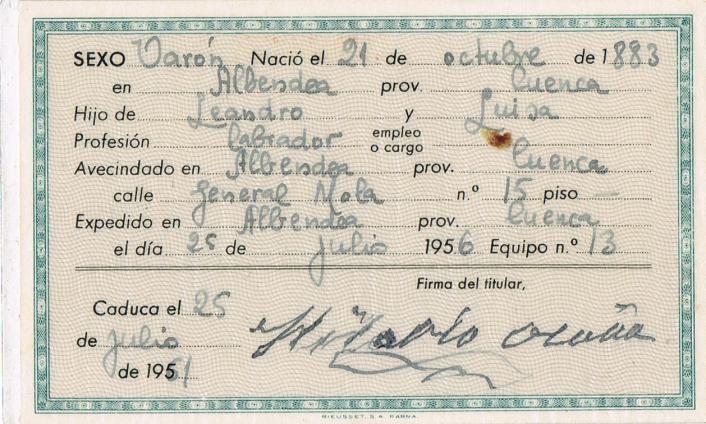 SEXO Varón Nació el 21 de octubre de 1883
en Albendea prov. Cuenca
Hijo de Leandro y Luisa
Profesión Labrador empleo o cargo
Avecindado en Albendea prov. Cuenca
calle General Mola n.º 15 piso —
Expedido en Albendea prov. Cuenca
el día 25 de julio 1956 Equipo n.º 13
Firma del titular,
Caduca el 25
de julio
de 1961
Ocaña
RIEUSSET, S. A. BARNA.